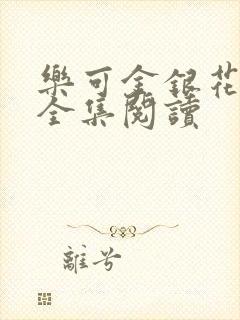 樂可金銀花
全集閱讀
離兮